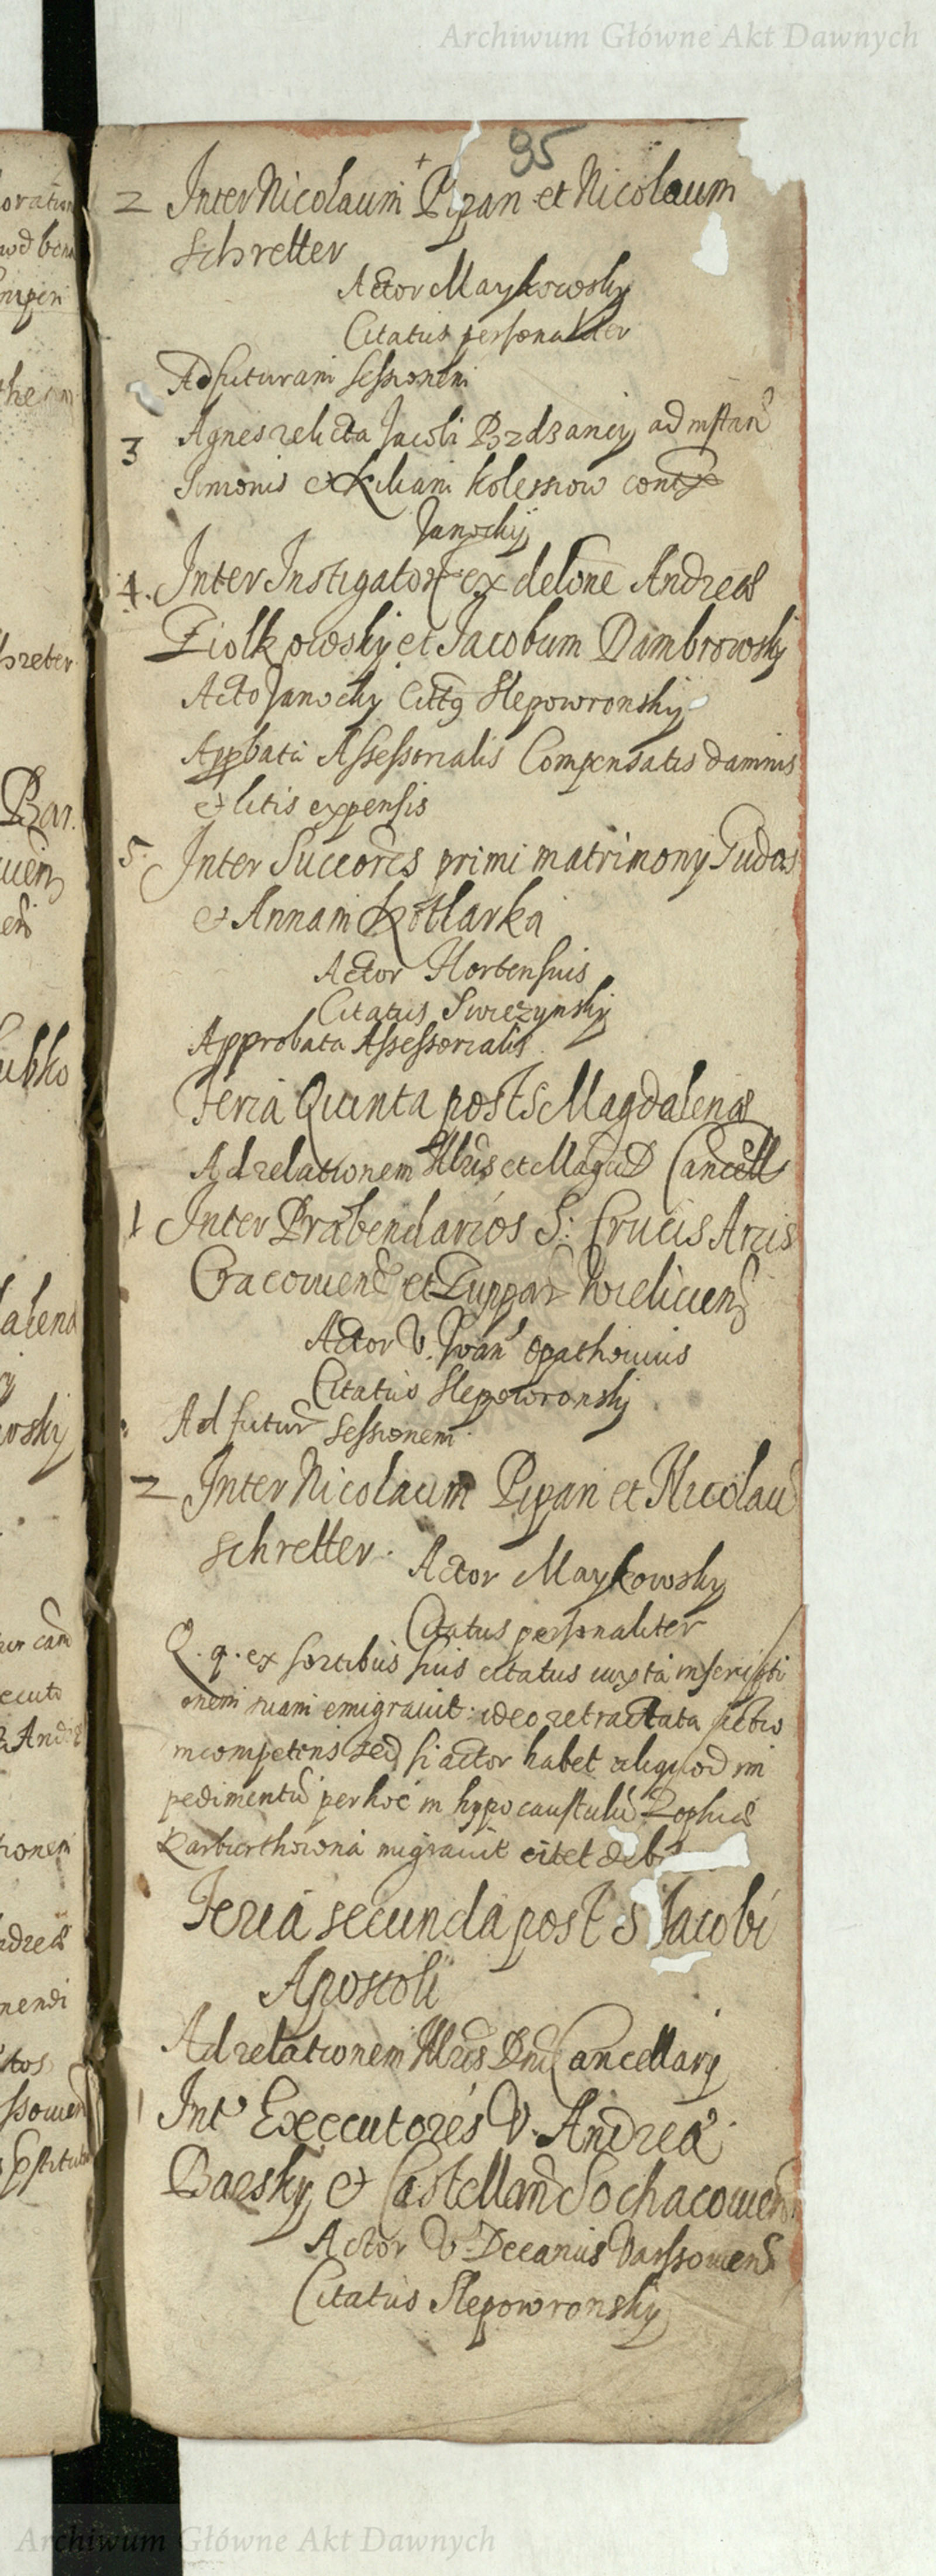 Archiwum Główne Akt Dawnych
95
2 Inter Nicolaum Pipan et Nicolaum
Schretter
Actor Maykowsky
Citatus personaliter
Ad futuram sessionem
3 Agnes relicta Jacobi ad instan
Simonis et Kiliani
Janochij
4. Inter Instigator ex delone Andreae
Ziolkowsky et Jacobum Dambrowsky
Acto Janochy Citt9 Slepowronskij
Appbata Assessorialis Compensatis damnis
et litis expensis
5. Inter Succores primi matrimony Judas
et Annam Kotlarka
Actor Hortensius
Citatus Swiezynsky
Approbata Assessorialis
Feria Quinta post S Magdalenae
Ad relationem Illris et Magcd Cancell
1 Inter Praebendarios S: Crucis Arcis
Cracouien et Zuppar Wielicien
Actor V. Iwan Opathouius
Citatus Slepowronsky
Ad futur sessionem
2 Inter Nicolaum Pipan et Nicolau
Schretter. Actor Maykowsky
Citatus personaliter
Q. q. ex sortibus suis citatus iuxta inscripti
onem suam emigrauit: ideo retractata actio
incompetens sed si actor habet aliquod im
pedimentu per hoc in hypocaustulu Zophiae
migrauit citet
Feria secunda post S Jacobi
Apostoli
Ad relationem Illris Dni Cancellarij
1 Int Executores V. Andrea
Barsky et Castellan Sochacouien
Actor V Decanus Varssouien
Citatus Slepowronsky
Archiwum Główne Akt Dawnych